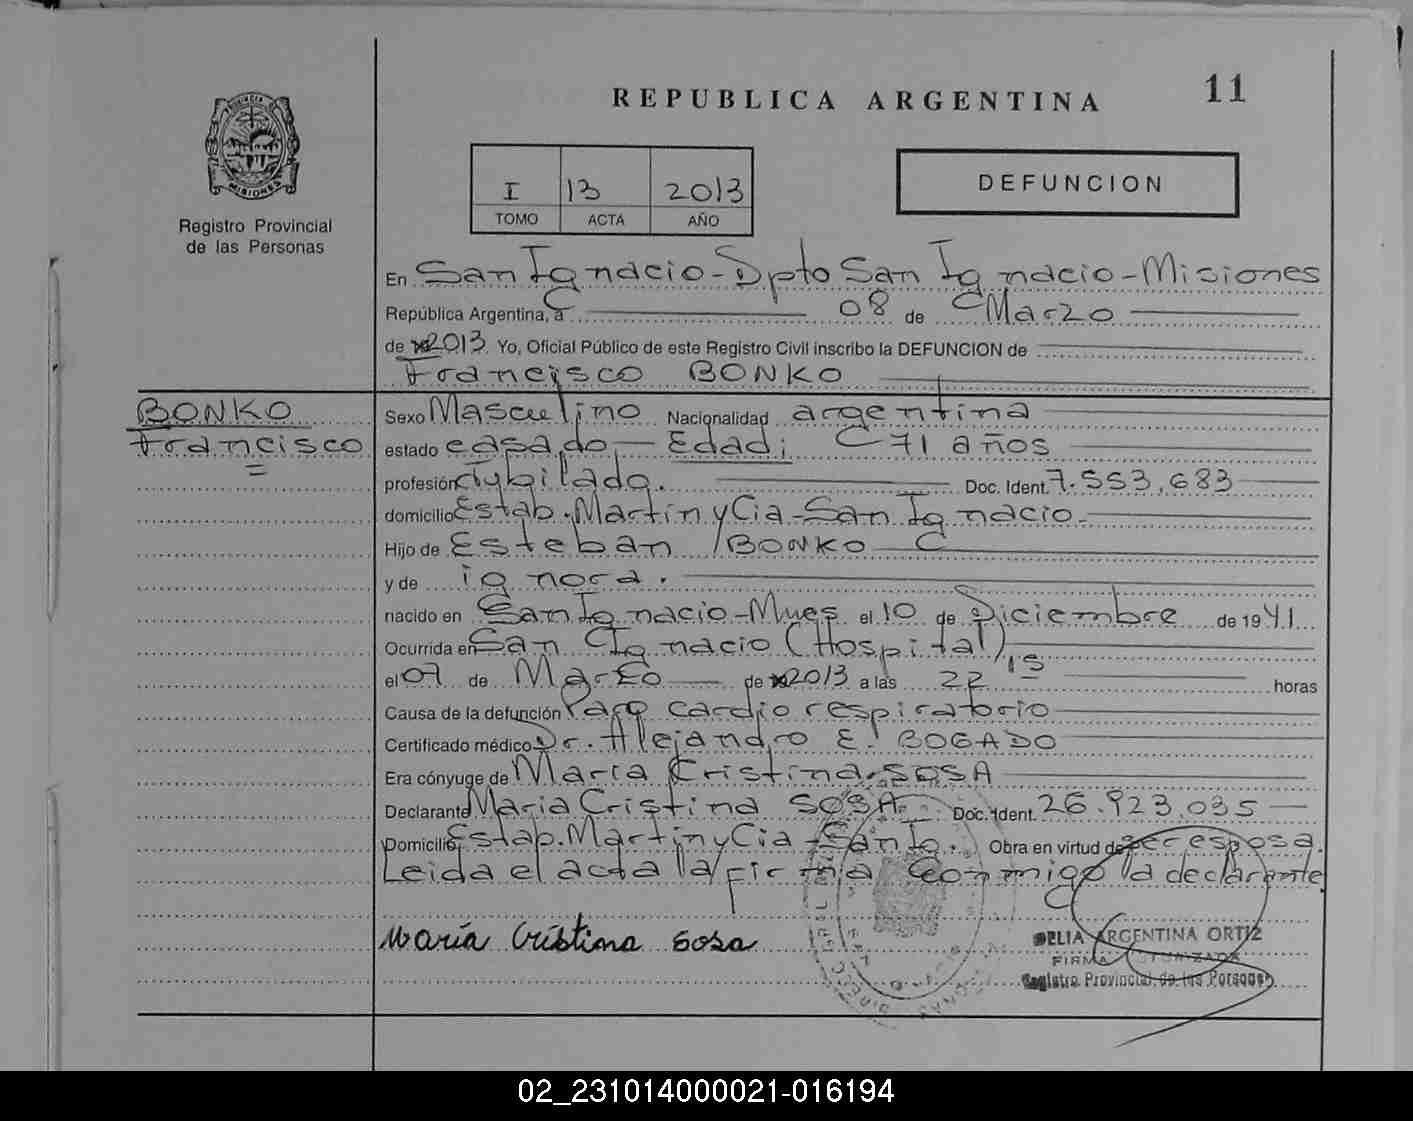 REPUBLICA ARGENTINA
11
PROVINCIA DE
MISIONES
Registro Provincial
de las Personas
I 13 2013
TOMO ACTA AÑO
DEFUNCION
En San Ignacio - Dpto San Ignacio - Misiones
República Argentina, a 08 de Marzo
de 2013. Yo, Oficial Público de este Registro Civil inscribo la DEFUNCION de
Francisco BONKO
BONKO
Francisco
Sexo Masculino Nacionalidad argentina
estado casado - Edad: 71 años
profesión Jubilado. Doc. Ident. 7.553.683
domicilio Estab. Martin y Cia - San Ignacio -
Hijo de Esteban BONKO
y de ignora.
nacido en San Ignacio - Mnes el 10 de Diciembre de 1941.
Ocurrida en San Ignacio (Hospital)
el 07 de Marzo de 2013 a las 22 15 horas
Causa de la defunción Paro cardio respiratorio
Certificado médico Dr. Alejandro E. BOGADO
Era cónyuge de Maria Cristina SOSA
Declarante Maria Cristina SOSA. Doc. Ident. 26.923.035
Domicilio Estab. Martin y Cia - San Ig. Obra en virtud de ser esposa.
Leida el acta la firma conmigo la declarante
María Cristina Sosa
DELIA ARGENTINA ORTIZ
FIRMA AUTORIZADA
Registro Provincial de las Personas
02_231014000021-016194